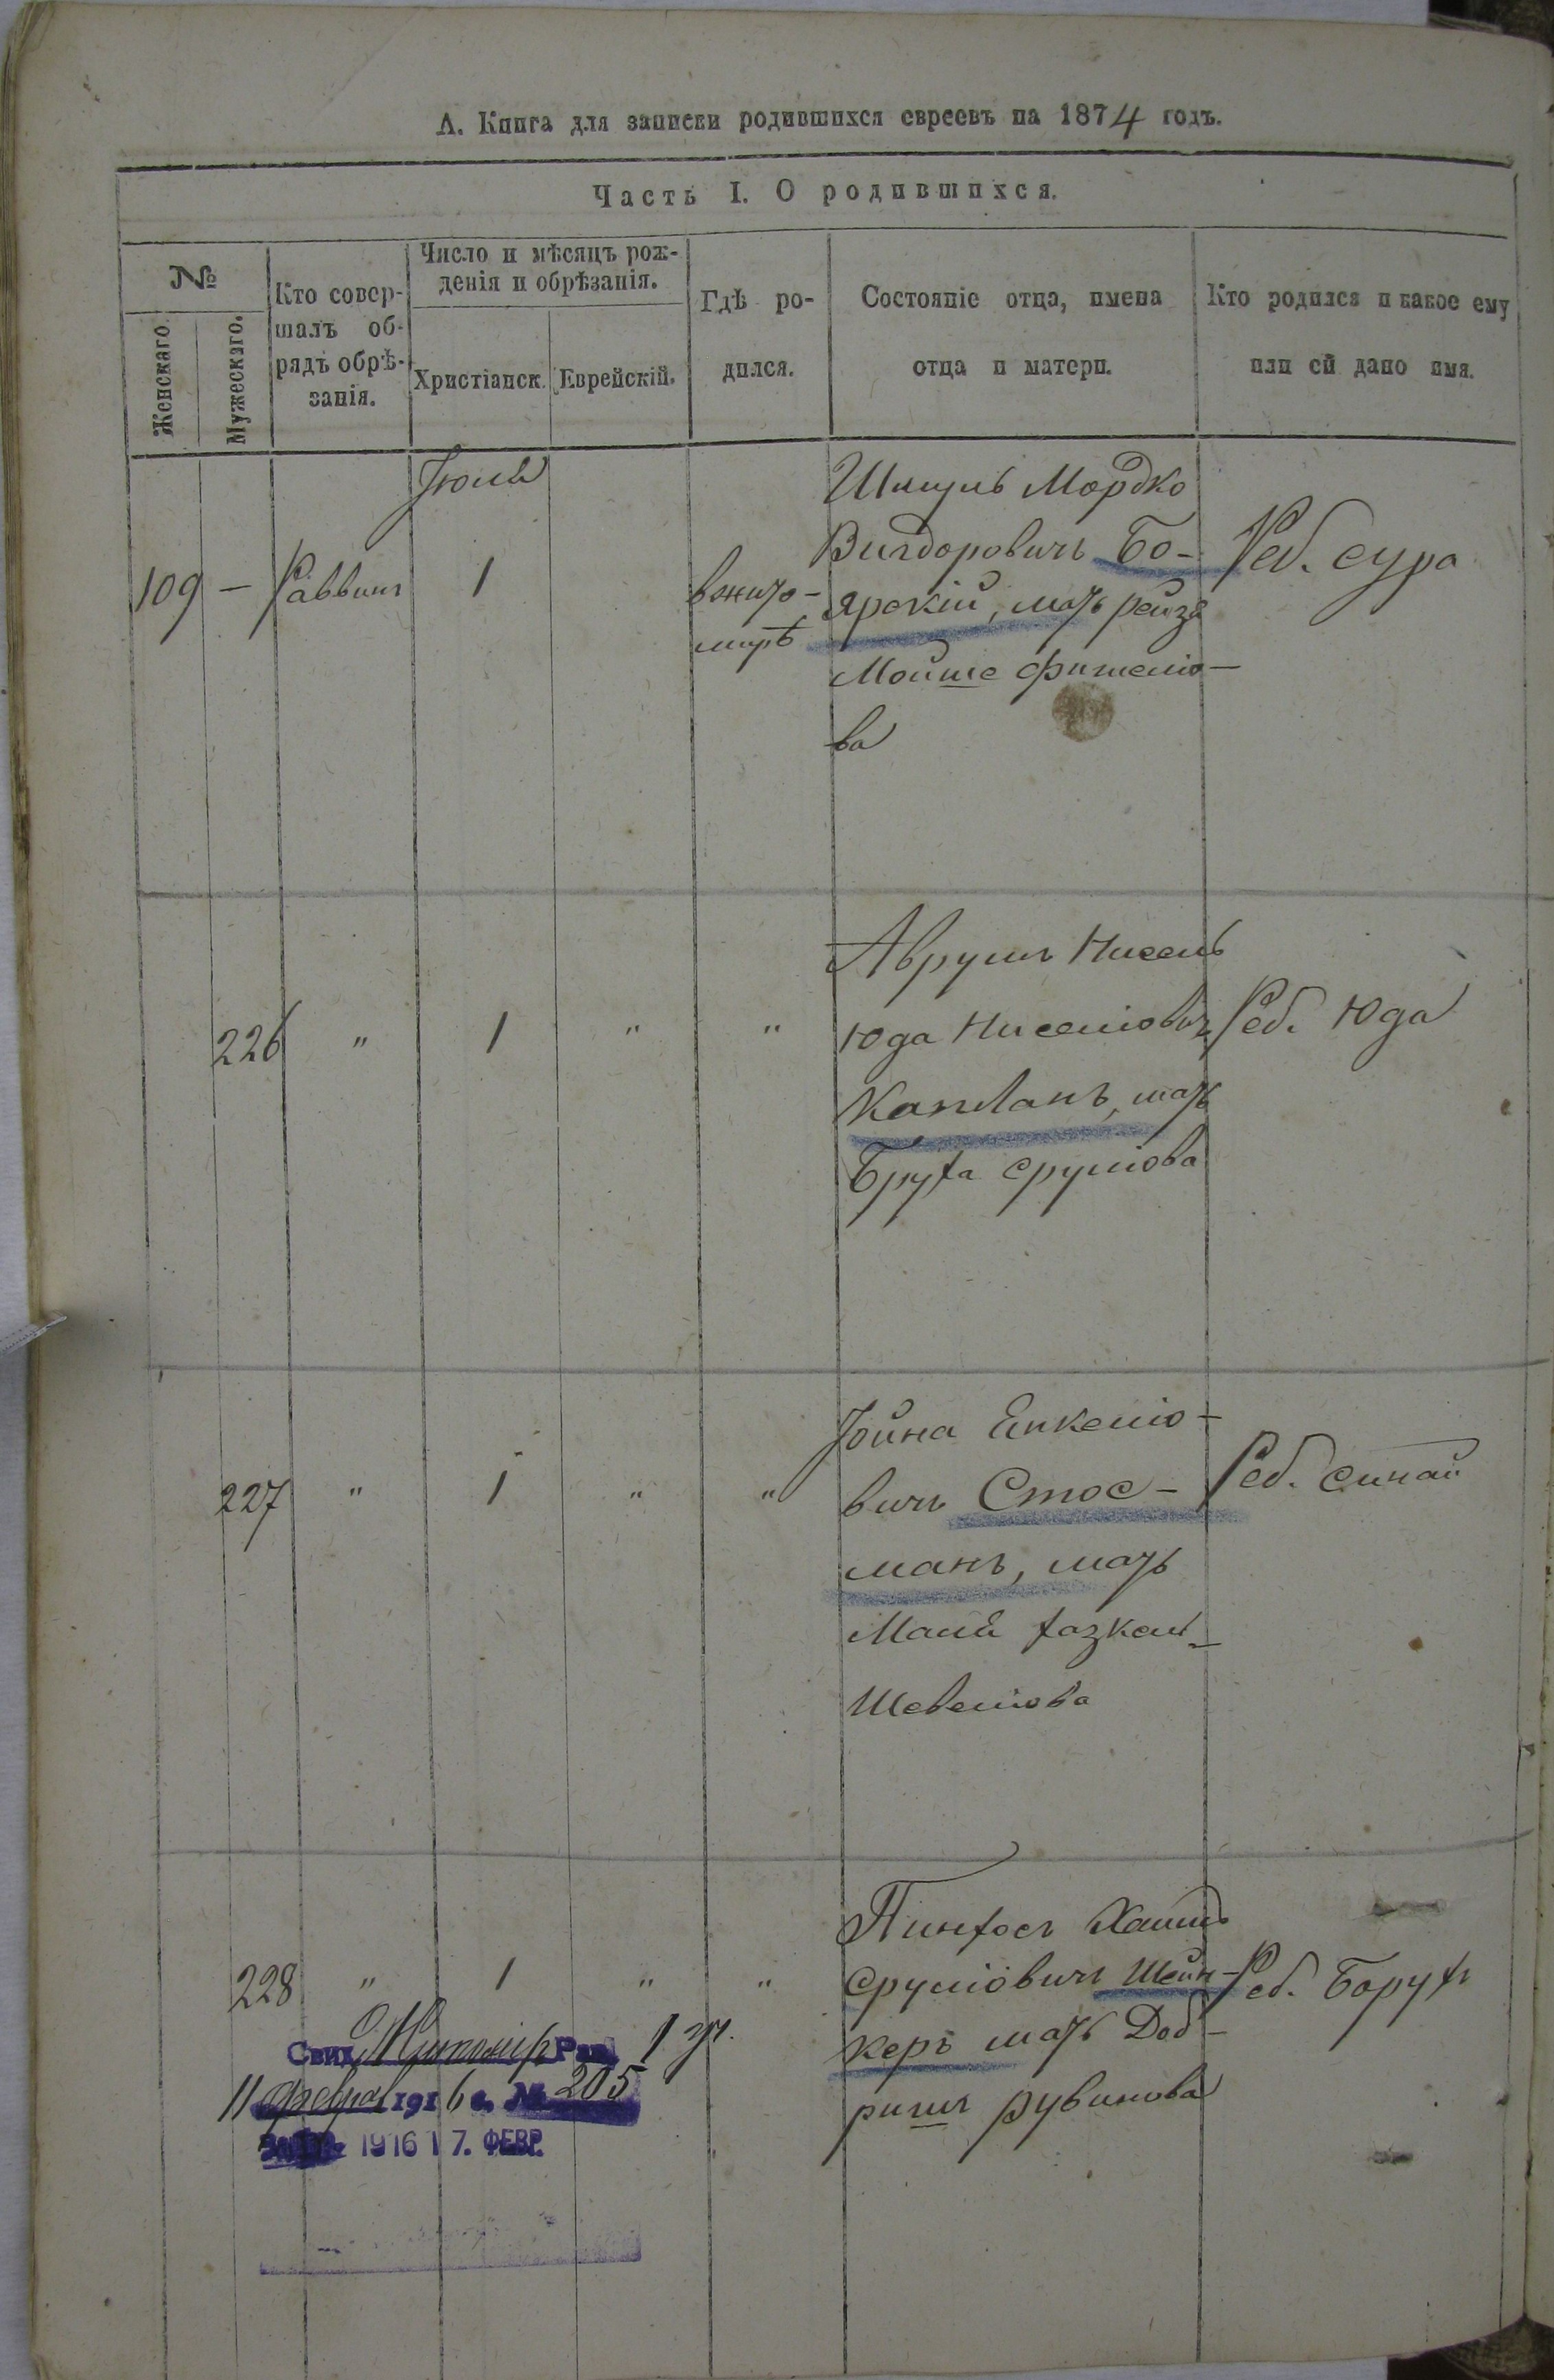 А. Книга для записки родившихся евреевъ на 1874 годъ.
Часть I. О родившихся.
№
Женскаго.
Мужескаго.
Кто совер-
шалъ об-
рядъ обрѣ-
занія.
Число и мѣсяцъ рож-
денія и обрѣзанія.
Христіанск.
Еврейскій.
Гдѣ ро-
дился.
Состояніе отца, имена
отца и матери.
Кто родился и какое ему
или ей дано имя.
109 — Раввинъ
1
в жито-
мирѣ
Шмуль Мордко
Вигдоровичъ Бо-
ярскій, мать рейзя
Мойше фишеліо-
ва
Реб. сура
226 " 1 " "
Аврумъ Нисель
Юда Ниселіовичъ
Капланъ, мать
Бруха сруліова
Реб. Юда
227 " 1 " "
Іойна Янкеліо-
вичъ Стос-
манъ, мать
Шевеліова
Реб. синай
228 " 1 " "
Пинхосъ Хаимъ
Сруліовичъ Шейн-
керъ мать Доб-
ришъ рувинова
Реб. Борухъ
Свид. Житомір. Рав.
11 феврал 1916 г. № 205
1916 17. ФЕВР.